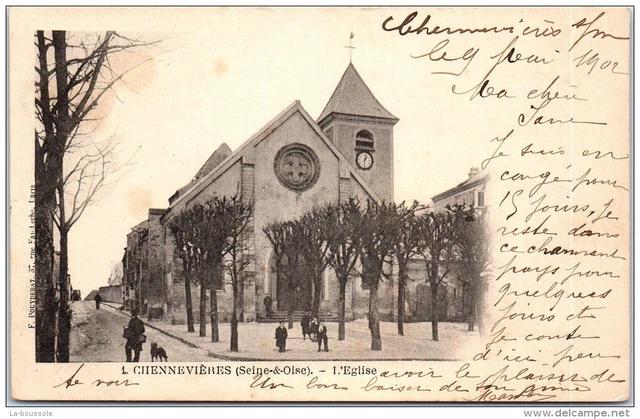 Chennevières s/m
le 9 Mai 1902
Ma chère
Jane
Je suis en
congé pour
15 jours, Je
reste dans
ce charmant
pays pour
quelques
jours et
Je compte
d'ici peu
avoir le plaisir de
te voir Un bon baiser de ton amie
1. CHENNEVIÈRES (Seine-&-Oise). - L'Eglise
F. POUYDEBAT, rue Paris
La-boussole
www.delcampe.net